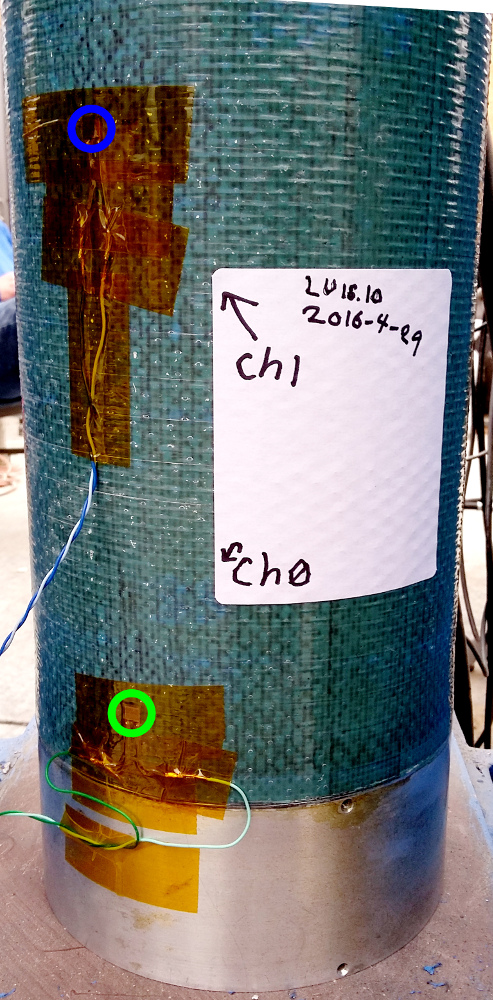 2018.10
2016-4-29
ch1
ch0